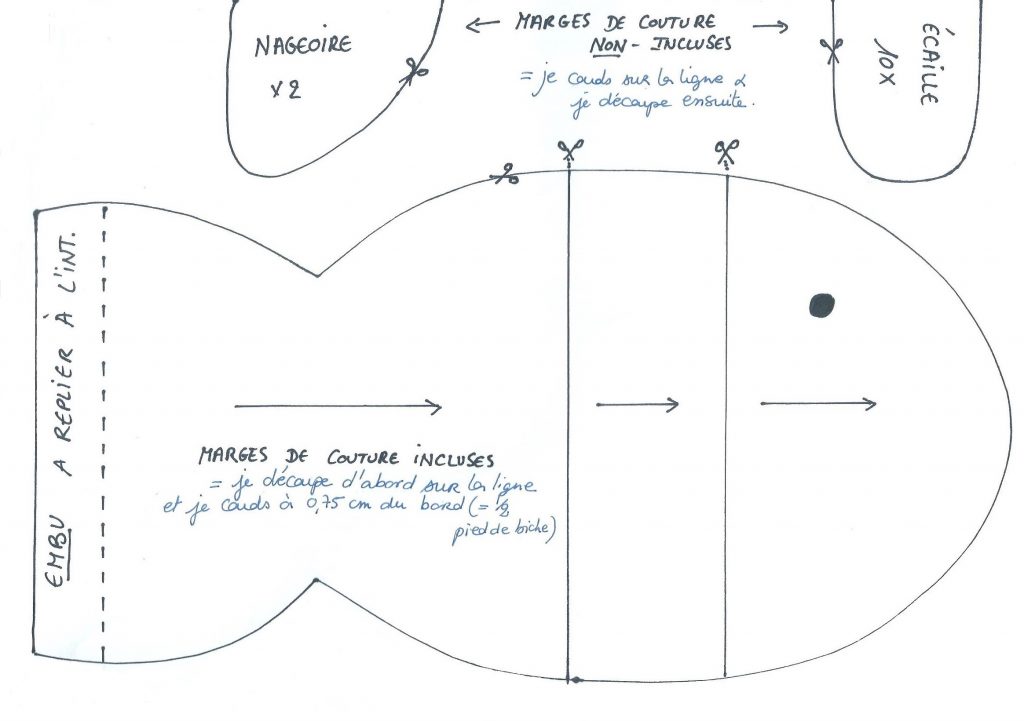 NAGEOIRE
x2
← MARGES DE COUTURE →
NON - INCLUSES
= je couds sur la ligne &
je découpe ensuite.
ÉCAILLE
10X
EMBU A REPLIER À L'INT.
MARGES DE COUTURE INCLUSES
= je découpe d'abord sur la ligne
et je couds à 0,75 cm du bord (= 1/2
pied de biche)